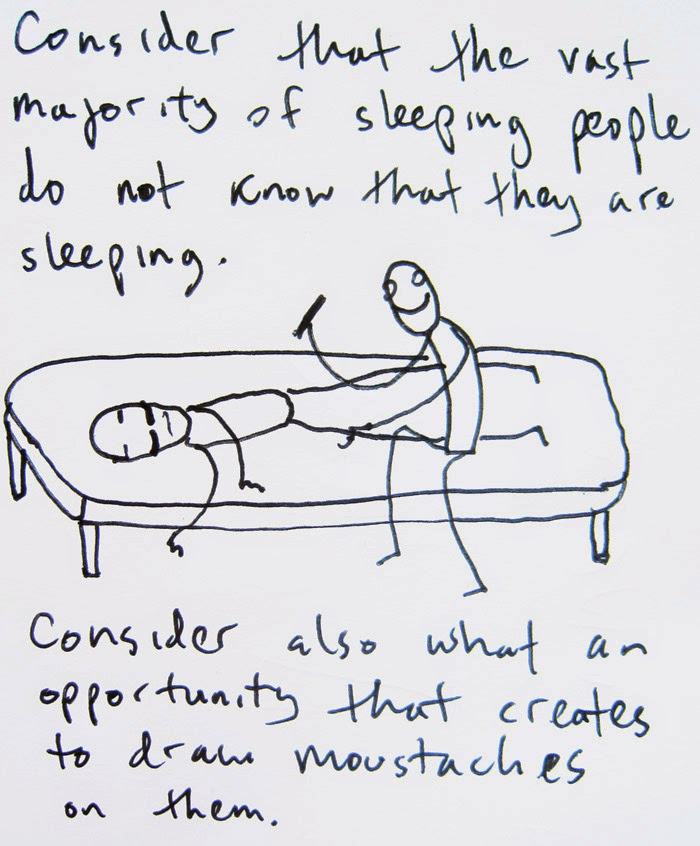 Consider that the vast
majority of sleeping people
do not know that they are
sleeping.
Consider also what an
opportunity that creates
to draw moustaches
on them.